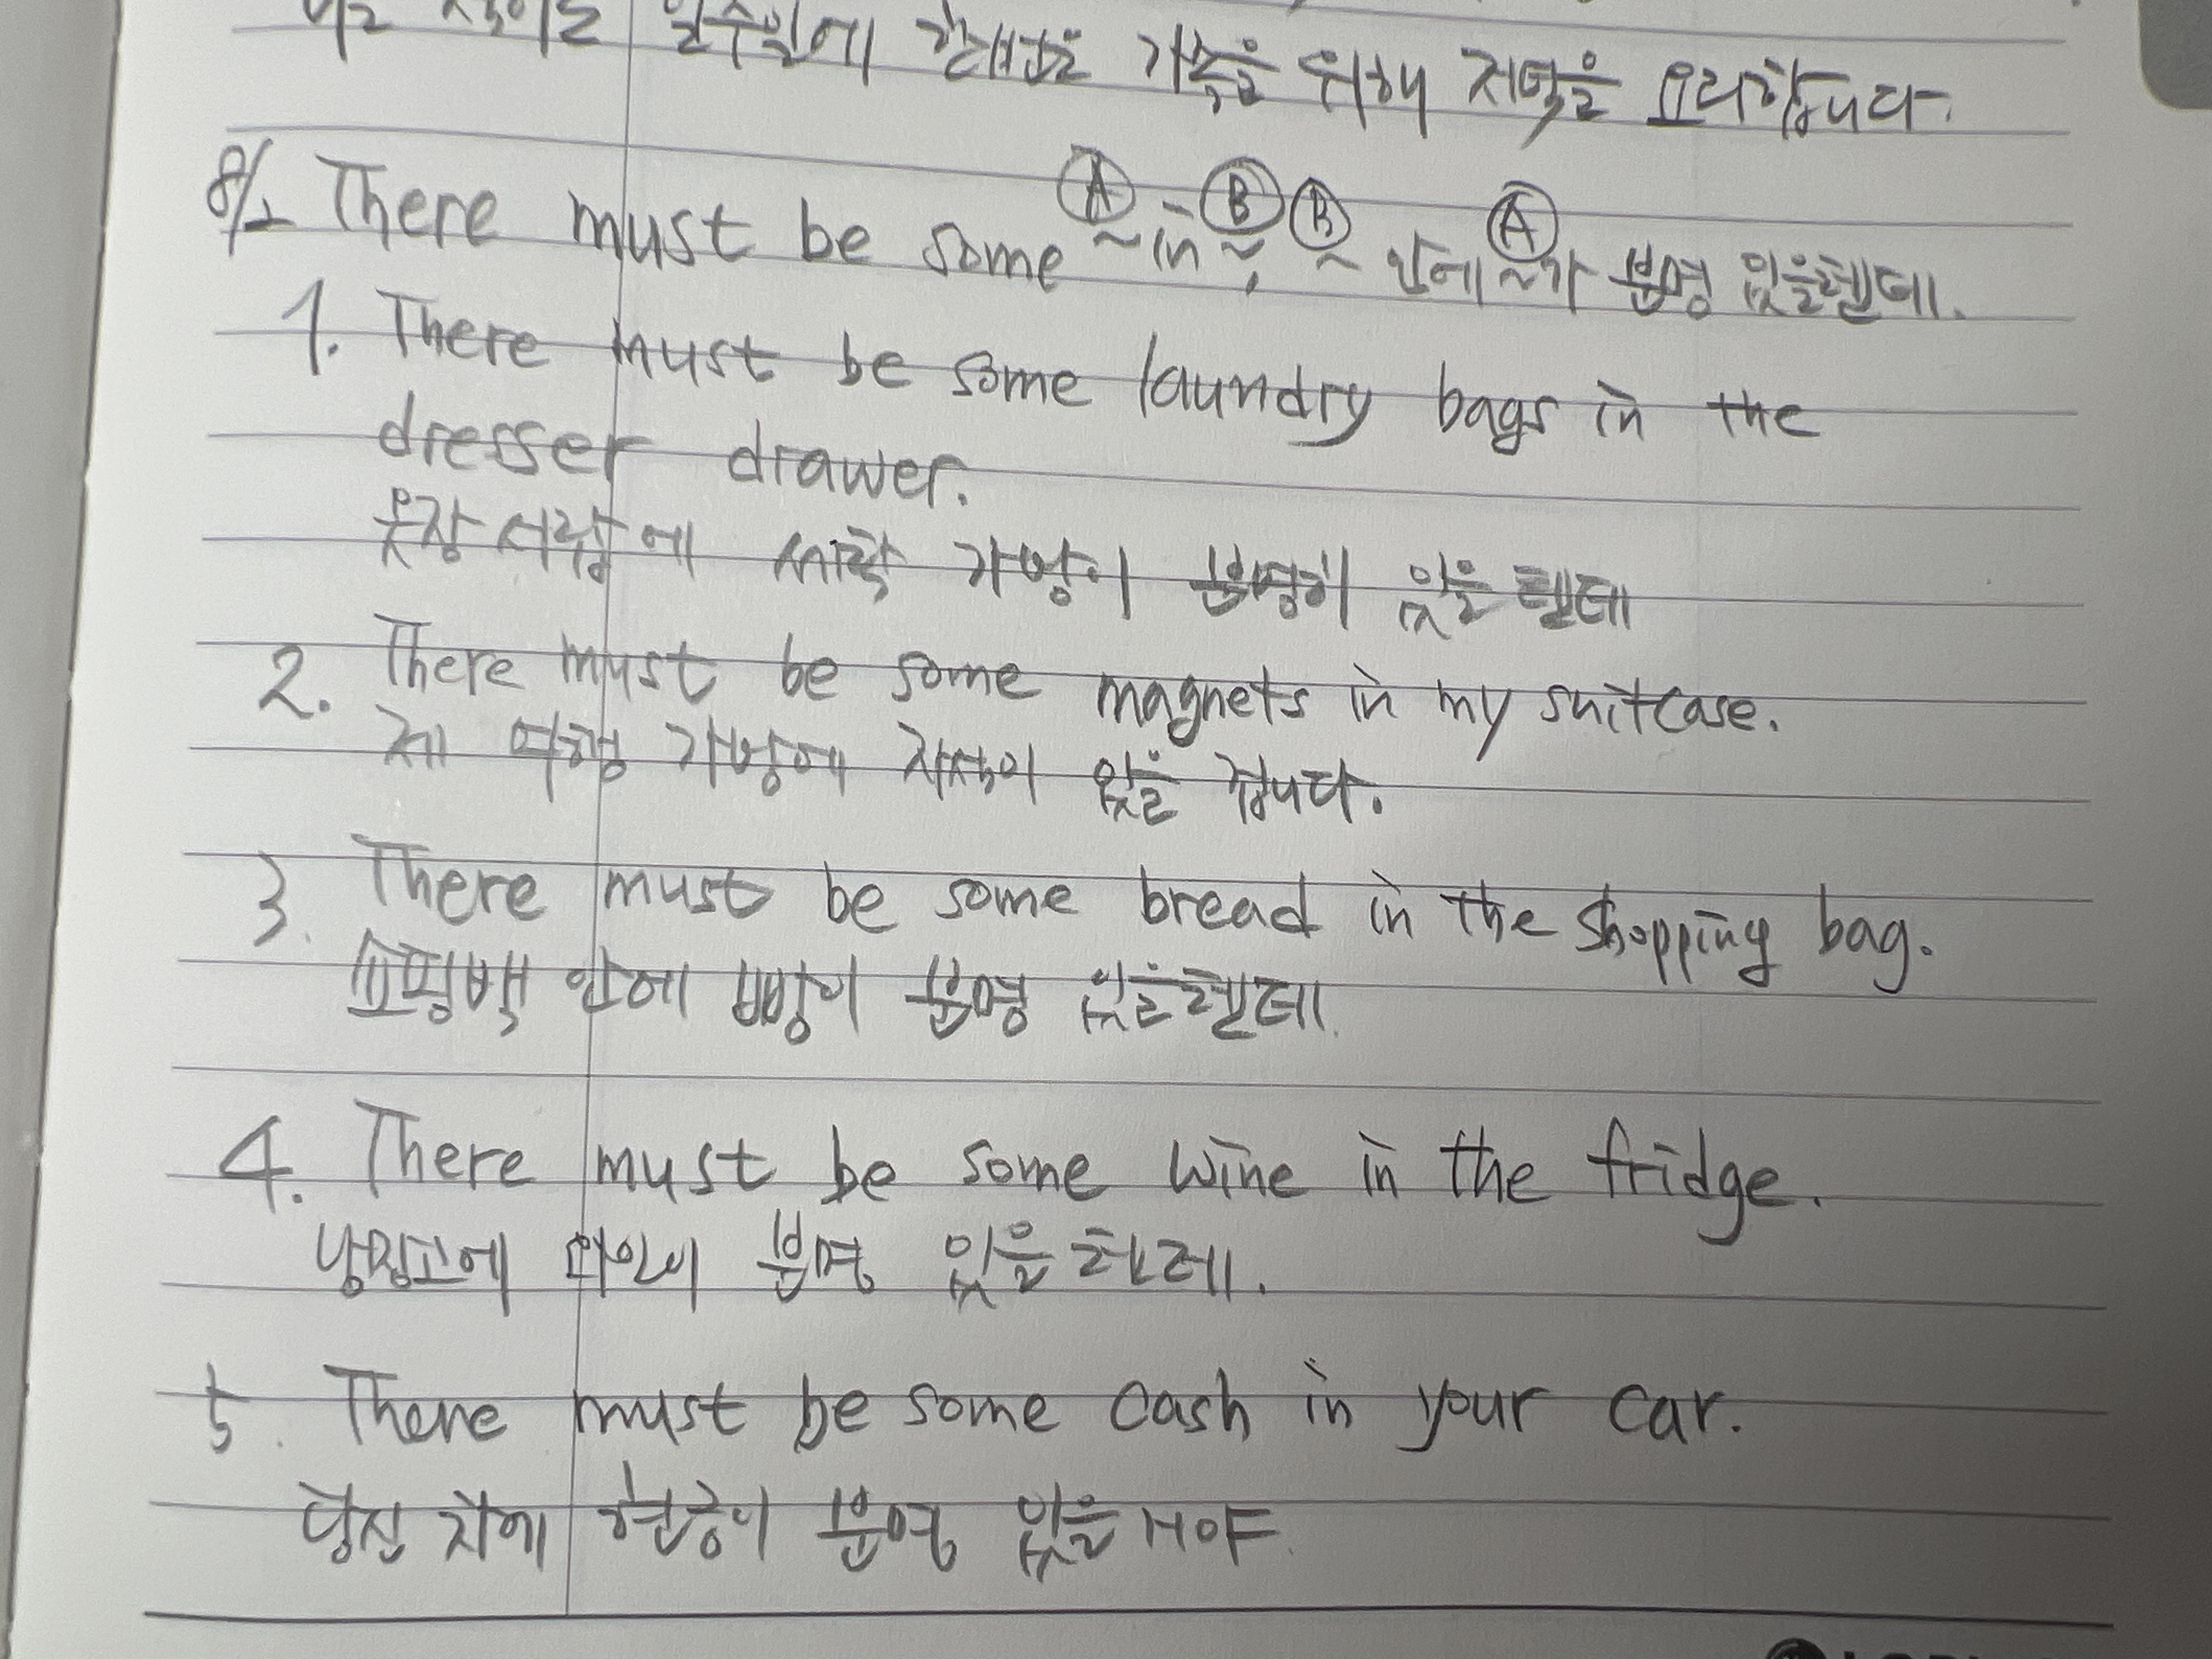 일주일에 한번은 가족을 위해 저녁을 요리합니다.
8/1 There must be some Ⓐ~ in Ⓑ~, Ⓑ~ 안에 Ⓐ~가 분명 있을텐데.
1. There must be some laundry bags in the
dresser drawer.
옷장 서랍에 세탁 가방이 분명히 있을 텐데
2. There must be some magnets in my suitcase.
제 여행 가방에 자석이 있을 겁니다.
3. There must be some bread in the shopping bag.
쇼핑백 안에 빵이 분명 있을텐데.
4. There must be some wine in the fridge.
냉장고에 와인이 분명 있을텐데.
5. There must be some cash in your car.
당신 차에 현금이 분명 있을